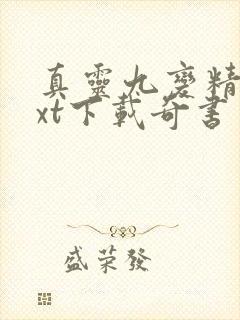 真靈九變精
xt下載奇書
盛榮發